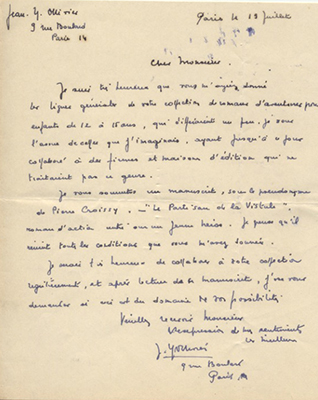 Jean. Y. Ollivier
9 rue Boulard
Paris 14
Paris le 19 Juillet
Cher Monsieur.
Je suis très heureux que vous m'ayiez donné
les lignes générales de votre collection de romans d'aventures pour
enfants de 12 à 15 ans, qui diffèrent un peu, je vous
l'avoue de celles que j'imaginais, ayant jusqu'à ce jour
collaboré à des firmes et maisons d'édition qui ne
traitaient pas ce genre.
Je vous soumettrai un manuscrit, sous le pseudonyme
de Pierre Croissy, "Le Partisan de la Vistule"
roman d'action
sur un jeune héros. Je pense qu'il
réunit toutes les conditions que vous m'avez données.
Je serais très heureux de collaborer à votre collection
régulièrement, et après lecture de ce manuscrit, j'irai vous
demander si ceci est du domaine de vos possibilités.
Veuillez recevoir Monsieur
l'expression de mes sentiments
les meilleurs
J. Y Ollivier
9 rue Boulard
Paris 14